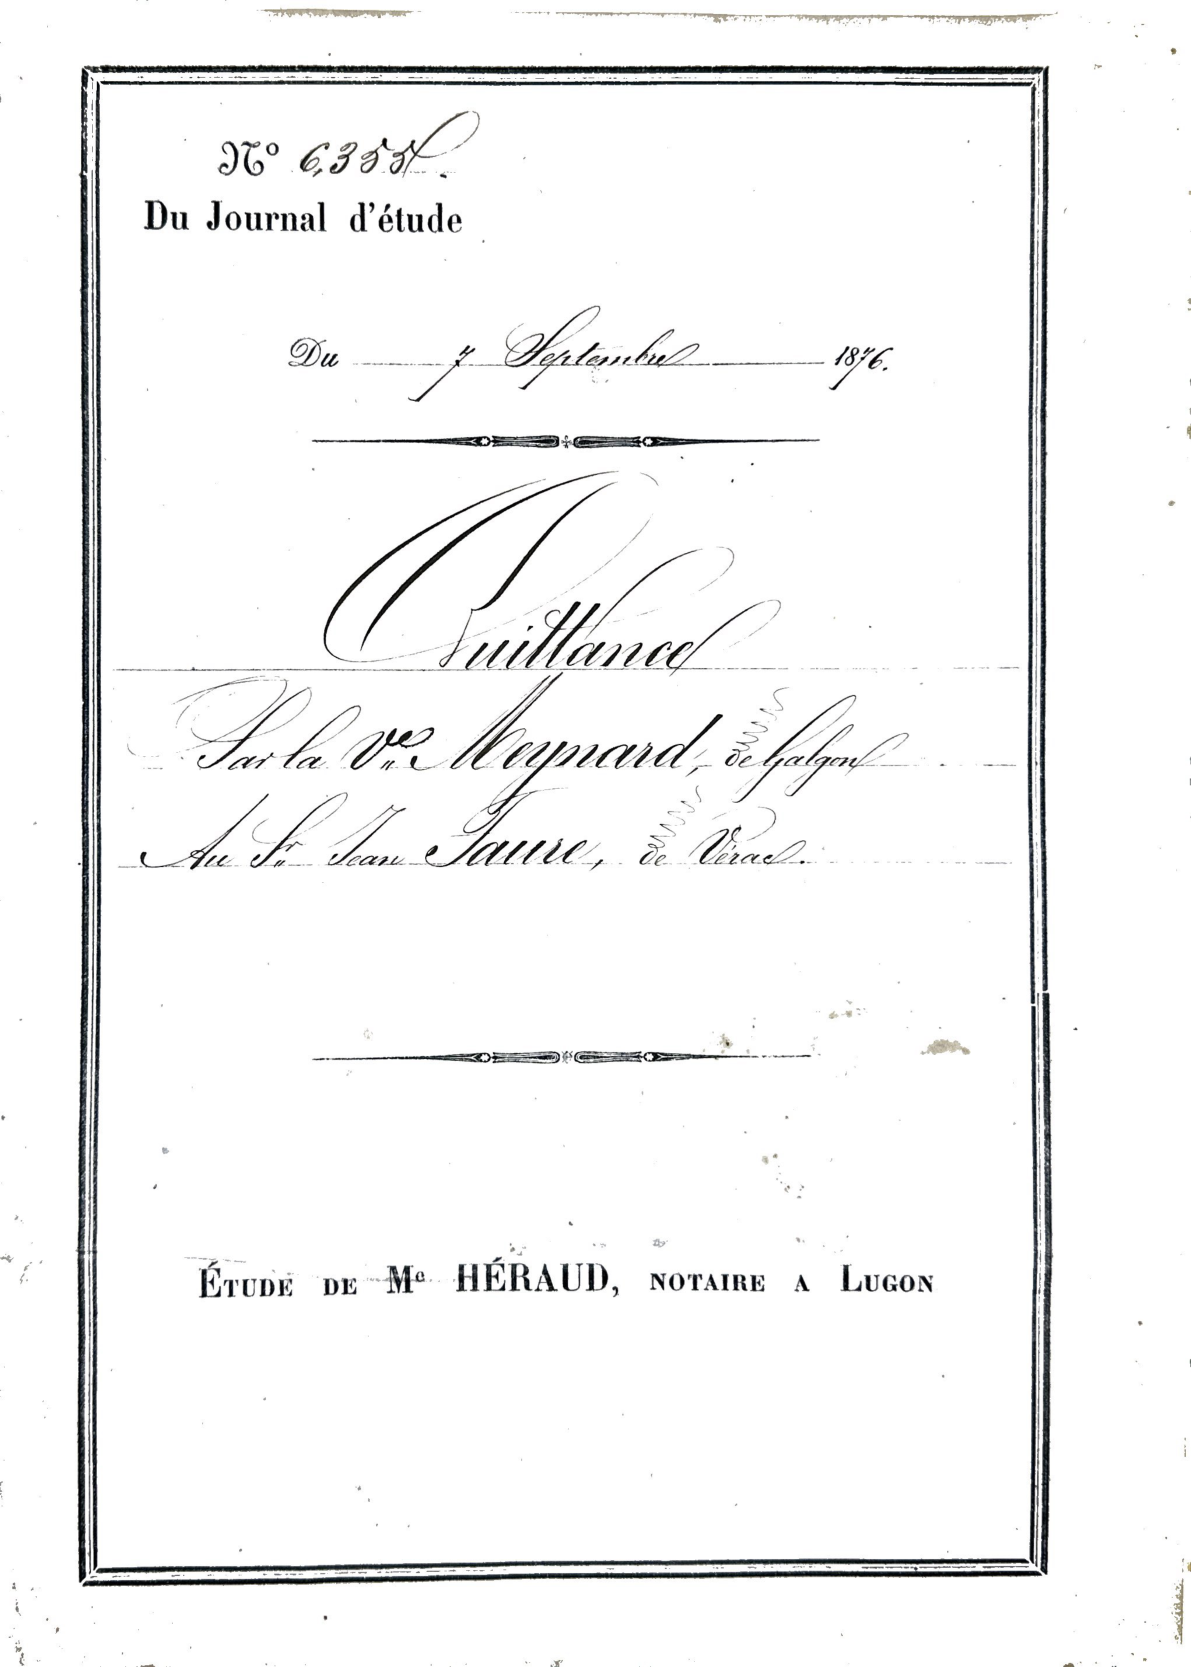 N° 6,355.
Du Journal d'étude
Du 7 Septembre 1876.
Quittance
Par la Vve Meynard, de Galgon
Au Sr Jean Faure, de Vérac.
ÉTUDE DE Me HÉRAUD, NOTAIRE A LUGON